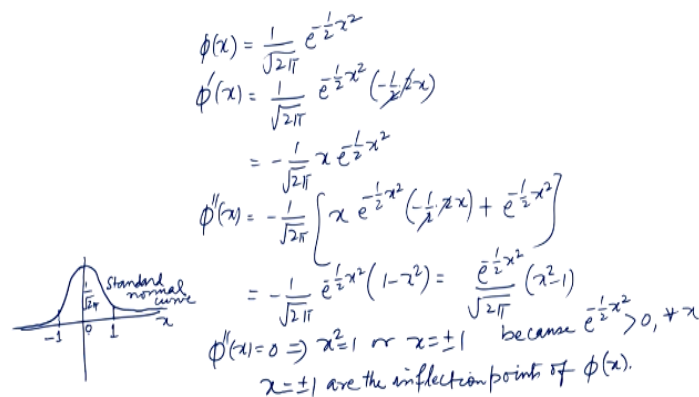 φ(x) = 1/√2π e^{-1/2 x²}
φ'(x) = 1/√2π e^{-1/2 x²} (-1/2·2x)
= -1/√2π x e^{-1/2 x²}
φ''(x) = -1/√2π [x e^{-1/2 x²} (-1/2·2x) + e^{-1/2 x²}]
= -1/√2π e^{-1/2 x²} (1-x²) = e^{-1/2 x²}/√2π (x²-1)
φ''(x)=0 ⇒ x²=1 or x=±1 because e^{-1/2 x²}>0, ∀ x
x=±1 are the inflection points of φ(x).
Standard
normal
curve
1/√2π
-1 0 1 x